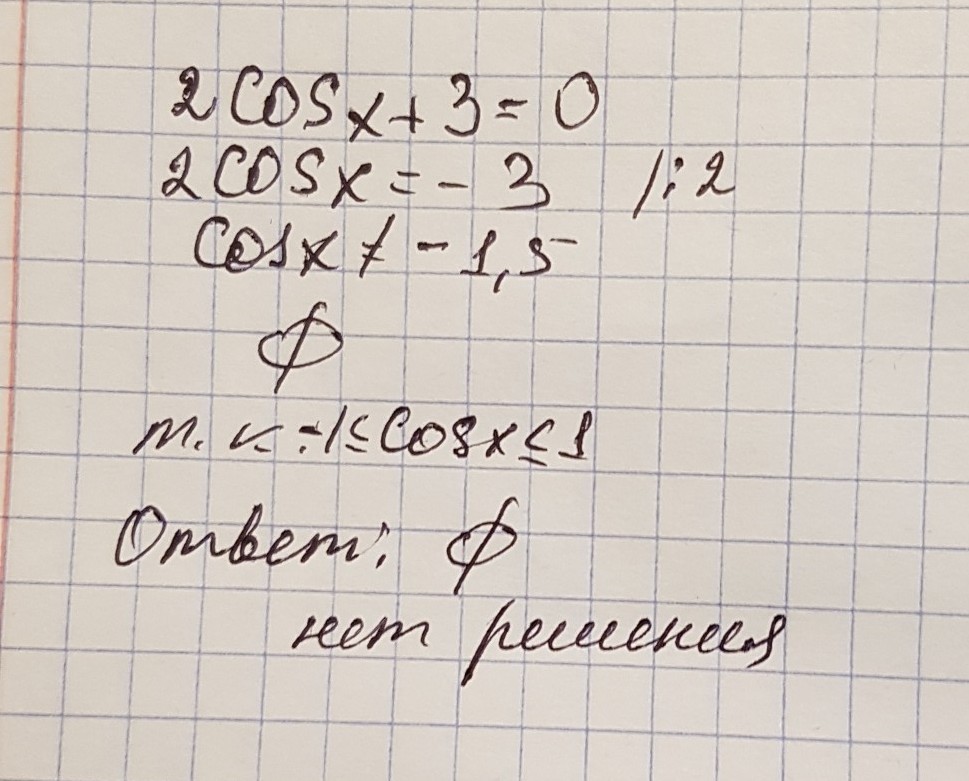 2cosx+3=0
2cosx=-3 /:2
cosx≠-1,5
∅
т.к. -1≤cosx≤1
Ответ: ∅
нет решения